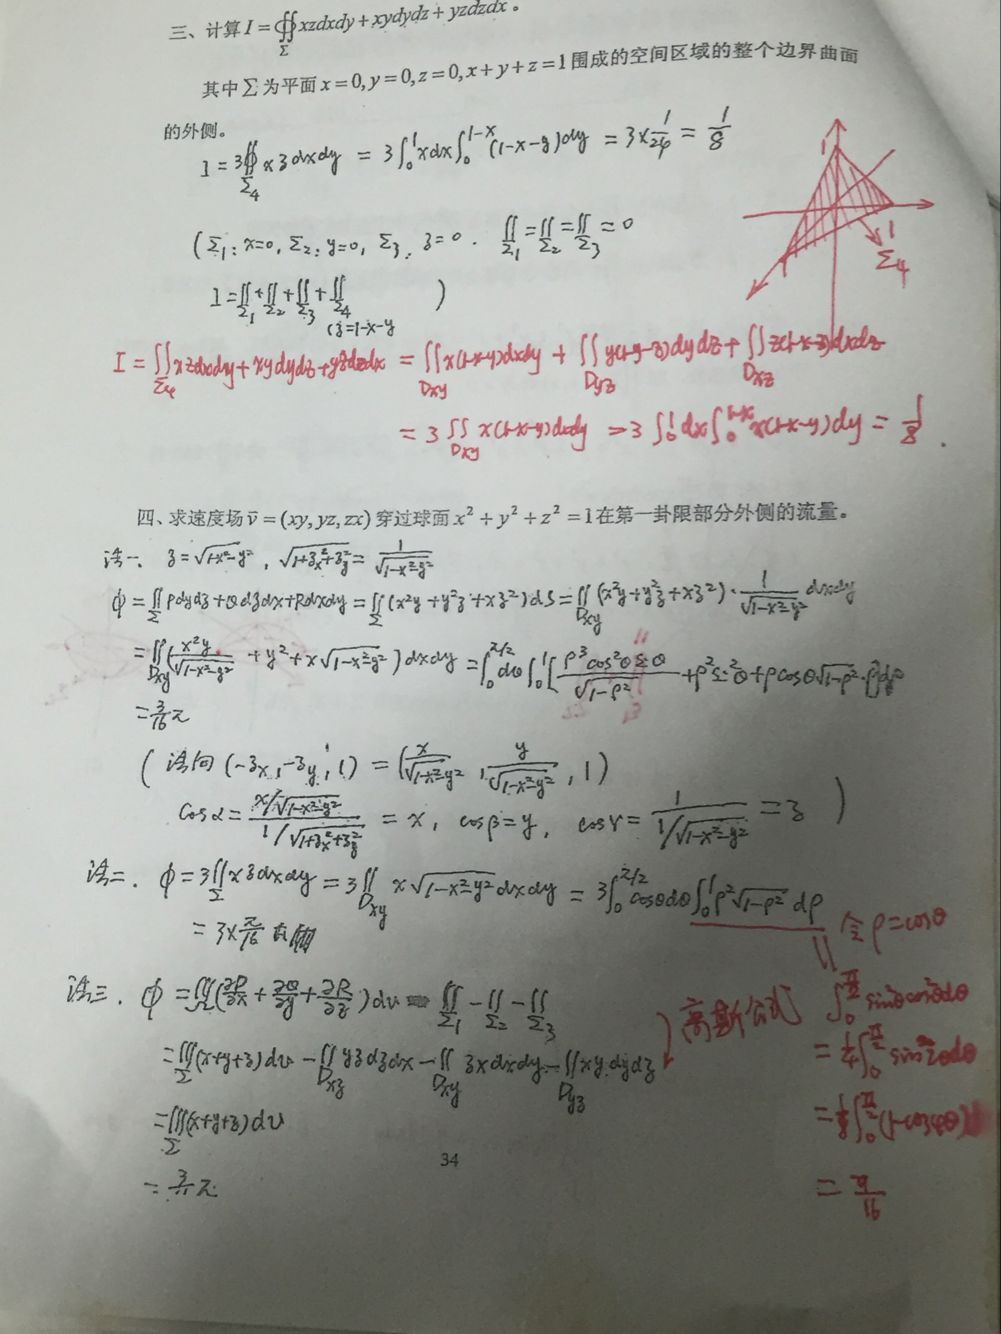 三、计算 I = ∯_Σ xzdxdy + xydydz + yzdzdx。
其中 Σ 为平面 x = 0, y = 0, z = 0, x + y + z = 1 围成的空间区域的整个边界曲面
的外侧。
I = 3∯_Σ₄ xzdxdy = 3∫₀¹xdx∫₀^{1-x}(1-x-y)dy = 3×1/24 = 1/8
(Σ₁: x=0, Σ₂: y=0, Σ₃: z=0. ∬_Σ₁ = ∬_Σ₂ = ∬_Σ₃ = 0
I = ∬_Σ₁ + ∬_Σ₂ + ∬_Σ₃ + ∬_Σ₄ )
(z=1-x-y
1
1
1
Σ₄
I = ∬_Σ₄ xzdxdy + xydydz + yzdzdx = ∬_Dxy x(1-x-y)dxdy + ∬_Dyz y(1-y-z)dydz + ∬_Dxz z(1-x-z)dxdz
= 3∬_Dxy x(1-x-y)dxdy = 3∫₀¹dx∫₀^{1-x}x(1-x-y)dy = 1/8.
四、求速度场 v̄ = (xy, yz, zx) 穿过球面 x² + y² + z² = 1 在第一卦限部分外侧的流量。
法一. z = √(1-x²-y²), √(1+z_x²+z_y²) = 1/√(1-x²-y²)
φ = ∬_Σ Pdydz + Qdzdx + Rdxdy = ∬_Σ (x²y + y²z + xz²)dS = ∬_Dxy (x²y + y²z + xz²)·1/√(1-x²-y²) dxdy
= ∬_Dxy (x²y/√(1-x²-y²) + y² + x√(1-x²-y²))dxdy = ∫₀^{π/2}dθ∫₀¹[ρ³cos²θsinθ/√(1-ρ²) + ρ²sin²θ + ρcosθ√(1-ρ²)]·ρdρ
= 3/16 π
(法向 (-z_x, -z_y, 1) = (x/√(1-x²-y²), y/√(1-x²-y²), 1)
cosα = (x/√(1-x²-y²))/(1/√(1+z_x²+z_y²)) = x, cosβ = y, cosγ = 1/(1/√(1-x²-y²)) = z )
法二. φ = 3∬_Σ xzdxdy = 3∬_Dxy x√(1-x²-y²)dxdy = 3∫₀^{π/2}cosθdθ∫₀¹ρ²√(1-ρ²)dρ
= 3×π/16
令 ρ = cosθ
∫₀^{π/2} sin²θcos²θdθ
= 1/4∫₀^{π/2} sin²2θdθ
= 1/8∫₀^{π/2}(1-cos4θ)
= π/16
法三. φ = ∭_Ω(∂P/∂x + ∂Q/∂y + ∂R/∂z)dv - ∬_Σ₁ - ∬_Σ₂ - ∬_Σ₃
高斯公式
= ∭_Σ(x+y+z)dv - ∬_Dxz yzdzdx - ∬_Dxy zxdxdy - ∬_Dyz xydydz
= ∭_Σ(x+y+z)dv
34